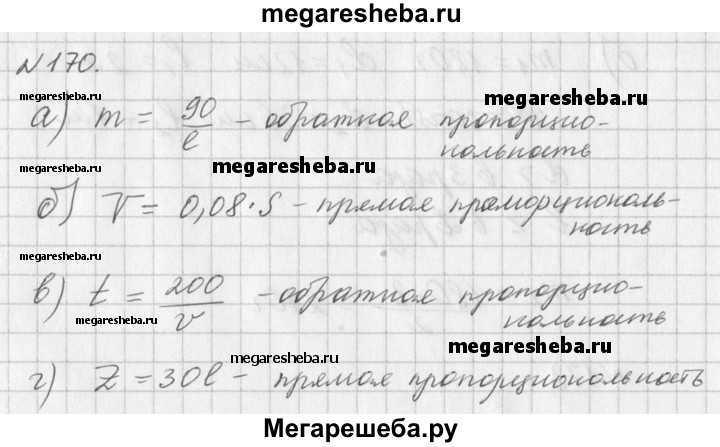 megaresheba.ru
№170.
megaresheba.ru
а) m = 90/l - обратная пропорцио-
megaresheba.ru
нальность
megaresheba.ru
б) V = 0,08·S - прямая праморциональ-
ность
megaresheba.ru
в) t = 200/v - обратная пропорцио-
megaresheba.ru
нальность
megaresheba.ru
megaresheba.ru
г) Z = 30l - прямая пропорциональность
Мегарешеба.ру